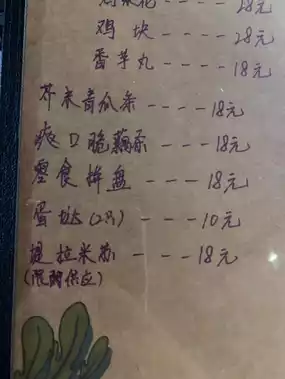 鸡米花 --- 28元
鸡块 --- 28元
香芋丸 --- 18元
芥末青瓜条 ---- 18元
爽口脆藕条 --- 18元
零食拼盘 --- 18元
蛋挞(2只) --- 10元
提拉米苏 --- 18元
(限时供应)